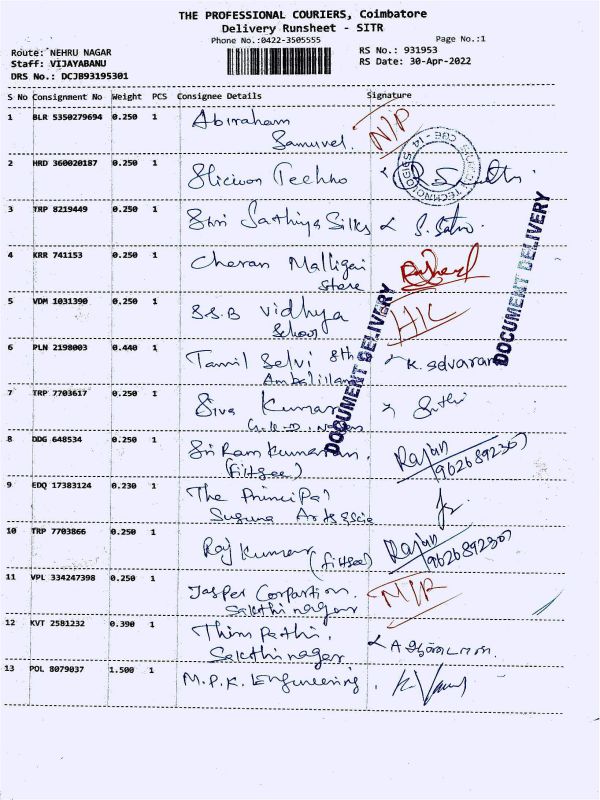 THE PROFESSIONAL COURIERS, Coimbatore
Delivery Runsheet - SITR
Phone No.:0422-3505555
Page No.:1
Route: NEHRU NAGAR
RS No.: 931953
Staff: VIJAYABANU
RS Date: 30-Apr-2022
DRS No.: DCJB93195301
S No Consignment No Weight PCS Consignee Details Signature
1 BLR 5350279694 0.250 1 Abiraham N/P
Samuvel.
2 HRD 360020187 0.250 1 Techno
3 TRP 8219449 0.250 1 Shri Sathiya Silks
4 KRR 741153 0.250 1 Cheran Malligai Rasheed
Store
5 VDM 1031390 0.250 1 S.S.B Vidhya
School
6 PLN 2198003 0.440 1 Tamil Selvi 8th K. Selvaram
7 TRP 7703617 0.250 1 Siva Kumar
8 DDG 648534 0.250 1 Sri Ram Kumaran. Rajan
(Fiitjee) 9626892307
9 EDQ 17383124 0.230 1 The Principal
Suguna Arts
10 TRP 7703866 0.250 1 Raj Kumar (fiitjee) Rajan
9626892307
11 VPL 334247398 0.250 1 Jasper N/P
Sakthi nagar
12 KVT 2581232 0.390 1
Sakthi nagar
13 POL 8079037 1.500 1 M.P.K. Engineering.
DOCUMENT DELIVERY
DOCUMENT DELIVERY